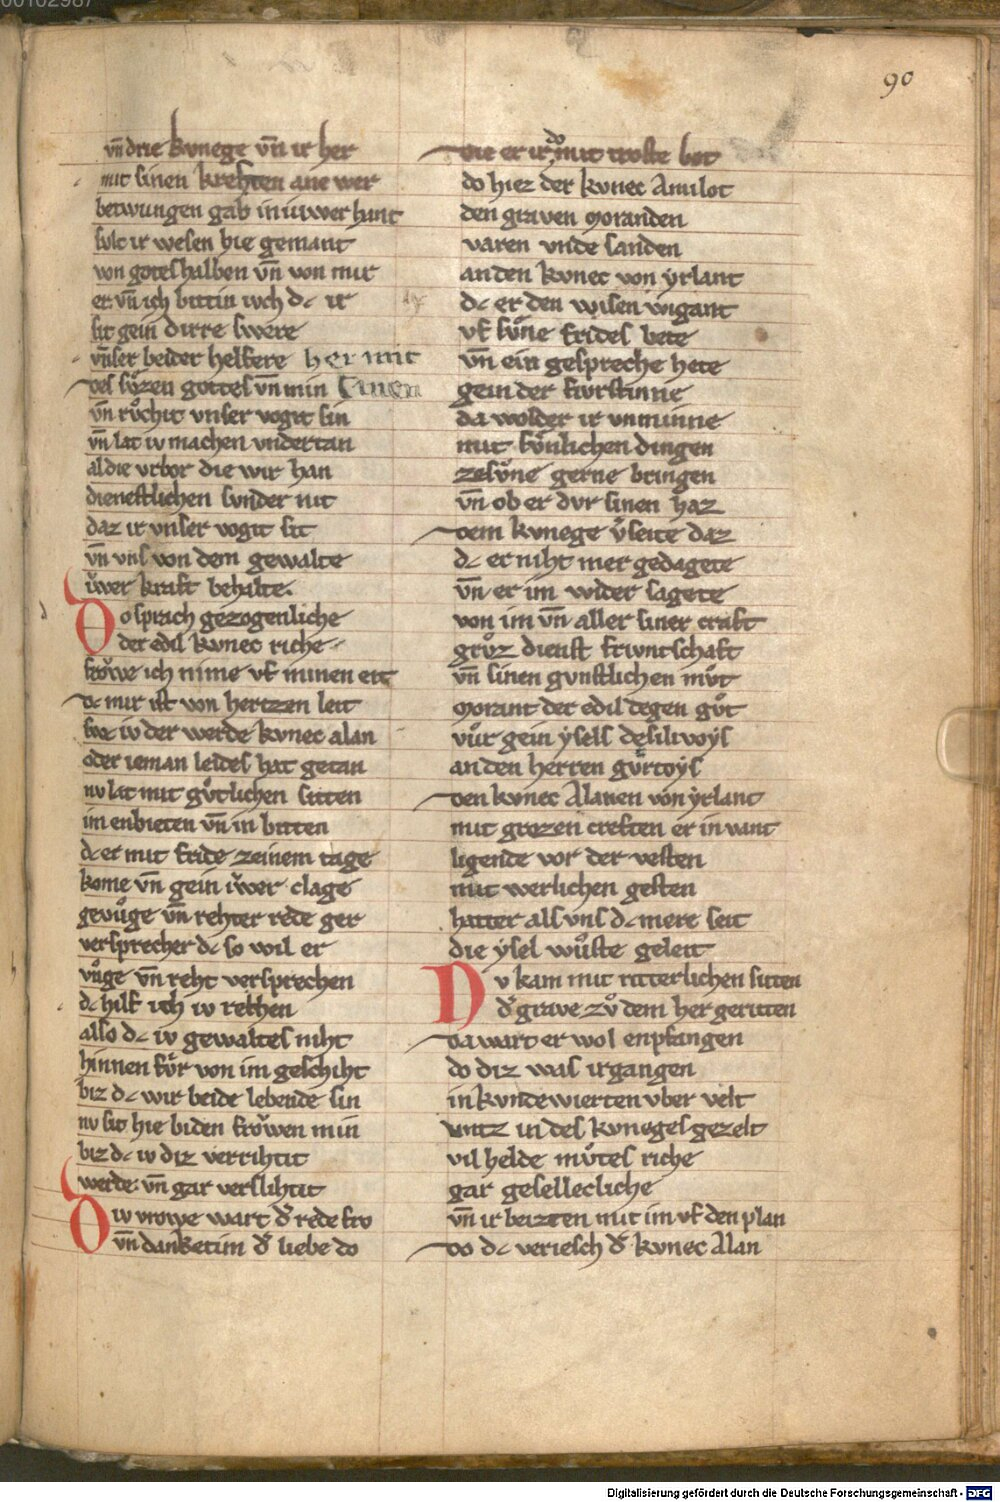 90
vn̄ drie kvnege vn̄ ir her
mit sinen krehten ane wer
betwungen gab in iuwer hant
sult ir wesen hie gemant
von goteshalben vn̄ von mir
er vn̄ ich bittin iuch dc ir
sit gein dirre swere
vnser beider helfere her mit
des sůzen gottes vn̄ min sinen
vn̄ růchit vnser vogit sin
vn̄ lat iv machen vndertan
al die vrbor die wir han
dienestlichen svnder nit
daz ir vnser vogit sit
vn̄ vns von dem gewalte
iwer kraft behalte.
Do sprach gezogenliche
der edil kvnec riche
frowe ich nime vf minen eit
dc mir ist von hertzen leit
swc iv der werde kvnec alan
oder ieman leides hat getan
nv lat mit gůtlichen sitten
im enbieten vn̄ in bitten
dc er mit fride zeinem tage
kome vn̄ gein iwer clage
gevůge vn̄ rehter rede ger
versprecher dc so wil er
vůge vn̄ reht versprechen
dc hilf ich iv rechen
also dc iv gewaltes niht
hinnen fůr von im geschiht
biz dc wir beide lebende sin
nv sit hie biden frowen min
biz dc iv diz verrihtit
werde. vn̄ gar verslihtit
Div vrowe wart d' rede fro
vn̄ danket im d' liebe do
die er ir do mit troste bot
do hiez der kvnec Amilot
den graven moranden
varen vnde sanden
an den kvnec von yrlant
dc er den wisen wigant
vf sůne frides bete
vn̄ ein gespreche hete
gein der fůrstinne
da wolder ir vnminne
mit fůnlichen dingen
zesůne gerne bringen
vn̄ ob er dvr sinen haz
dem kvnege v'seite daz
dc er niht mer gedagete
vn̄ er im wider sagete
von im vn̄ aller siner craft
grůz dienst frivntschaft
vn̄ sinen gvnstlichen můt
morant der edil degen gůt
vůr gein ysels desilwoys
an den herren gůrtoys
den kvnec Alanen von yrlant
mit grozen creften er in vant
ligende vor der vesten
mit werlichen gesten
hatter als vns dc mere seit
die ysel wůste geleit
Dv kam mit ritterlichen sitten
d' grave zů dem her geritten
da wart er wol enpfangen
do diz was irgangen
in kvndewierten vber velt
vntz in des kvneges gezelt
vil helde můtes riche
gar gesellecliche
vn̄ ir beizten mit im vf den plan
do dc veriesch d' kvnec Alan
Digitalisierung gefördert durch die Deutsche Forschungsgemeinschaft - DFG